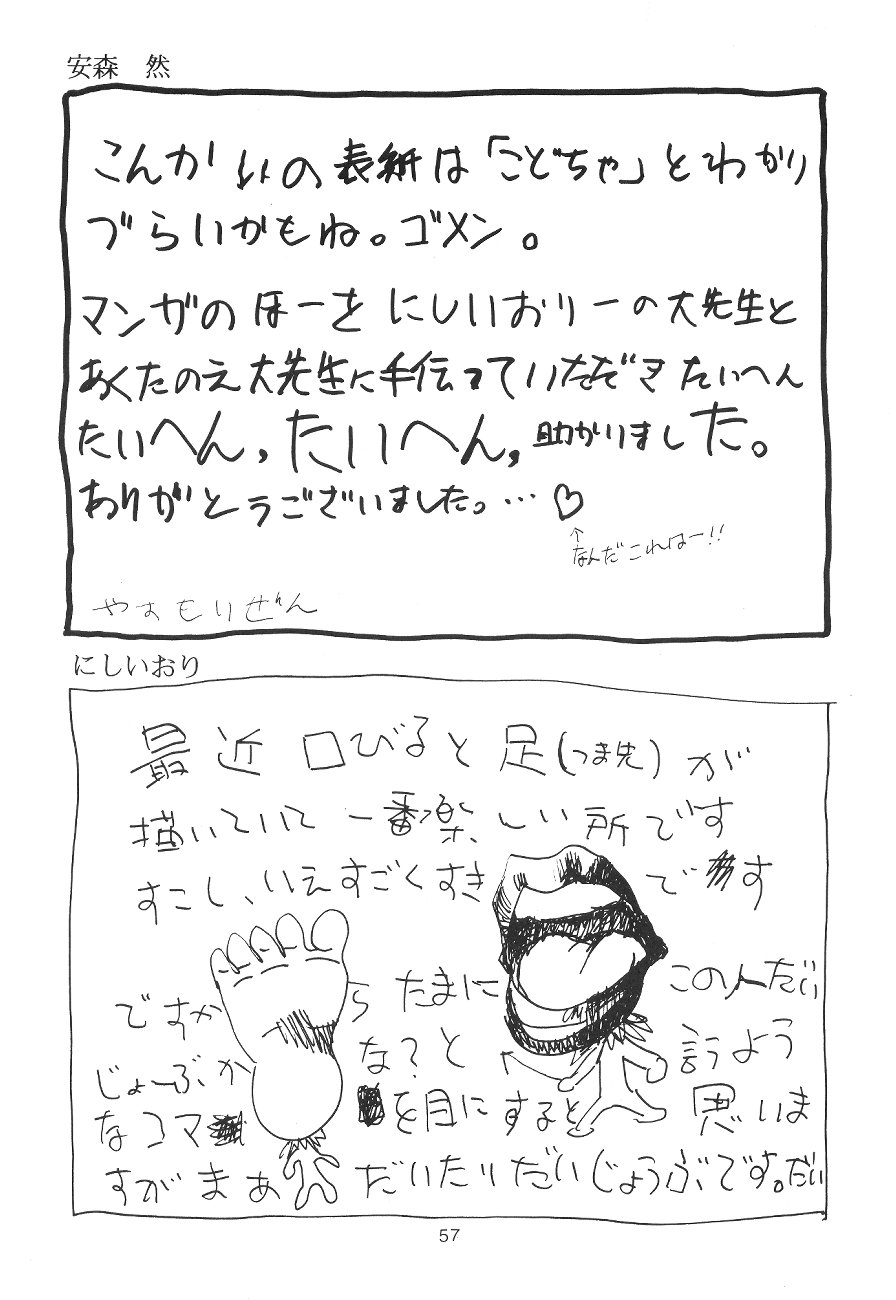 安森　然
こんかいの表紙は「こどちゃ」とわかり
づらいかもね。ゴメン。
マンガのほーを にしいおりーの大先生と
あくたのえ大先生に手伝っていただき たいへん
たいへん，たいへん，助かりました。
ありがとうございました。…♡
↑なんだこれはー!!
やすもりぜん
にしいおり
最近 口びると足(つま先)が
描いていて一番楽しい所です
すこし、いえすごくすき です
ですから たまに この人だい
じょーぶかな?と 言うよう
なコマ を目にすると 思いま
すがまぁ だいたいだいじょうぶです。だい
57